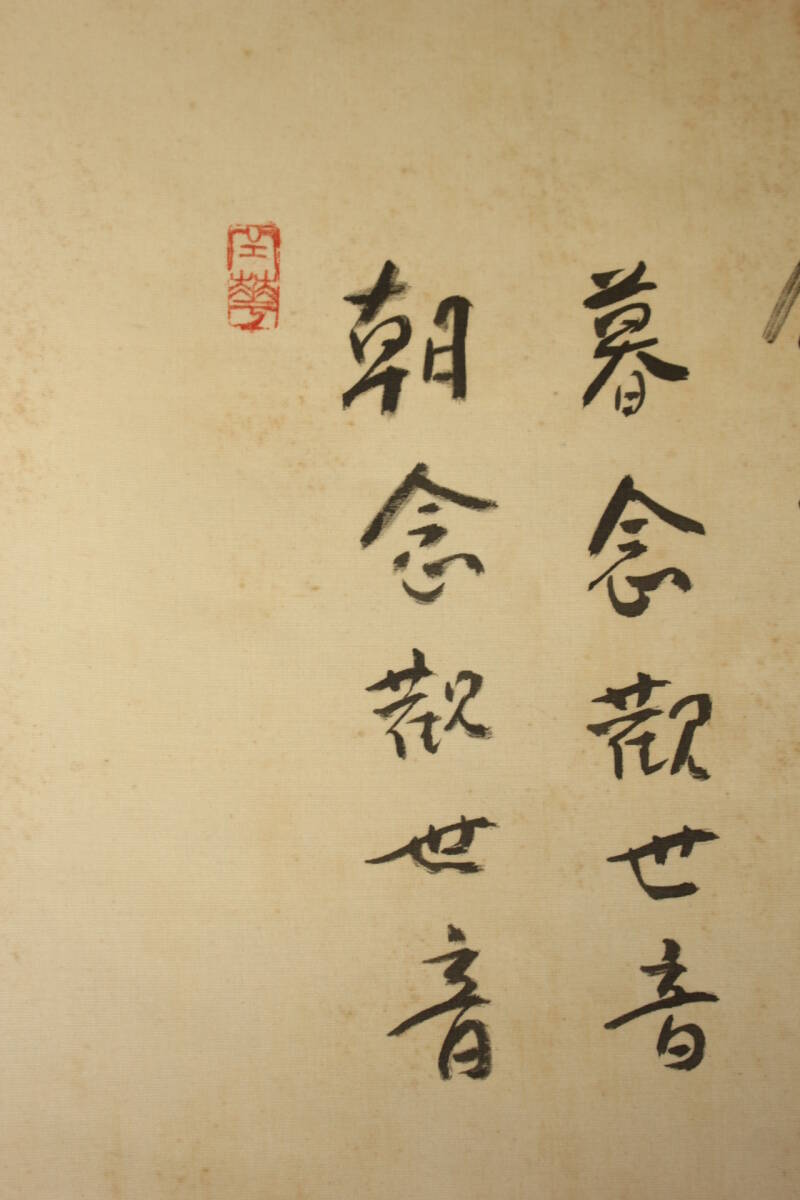 空華
朝念觀世音
暮念觀世音